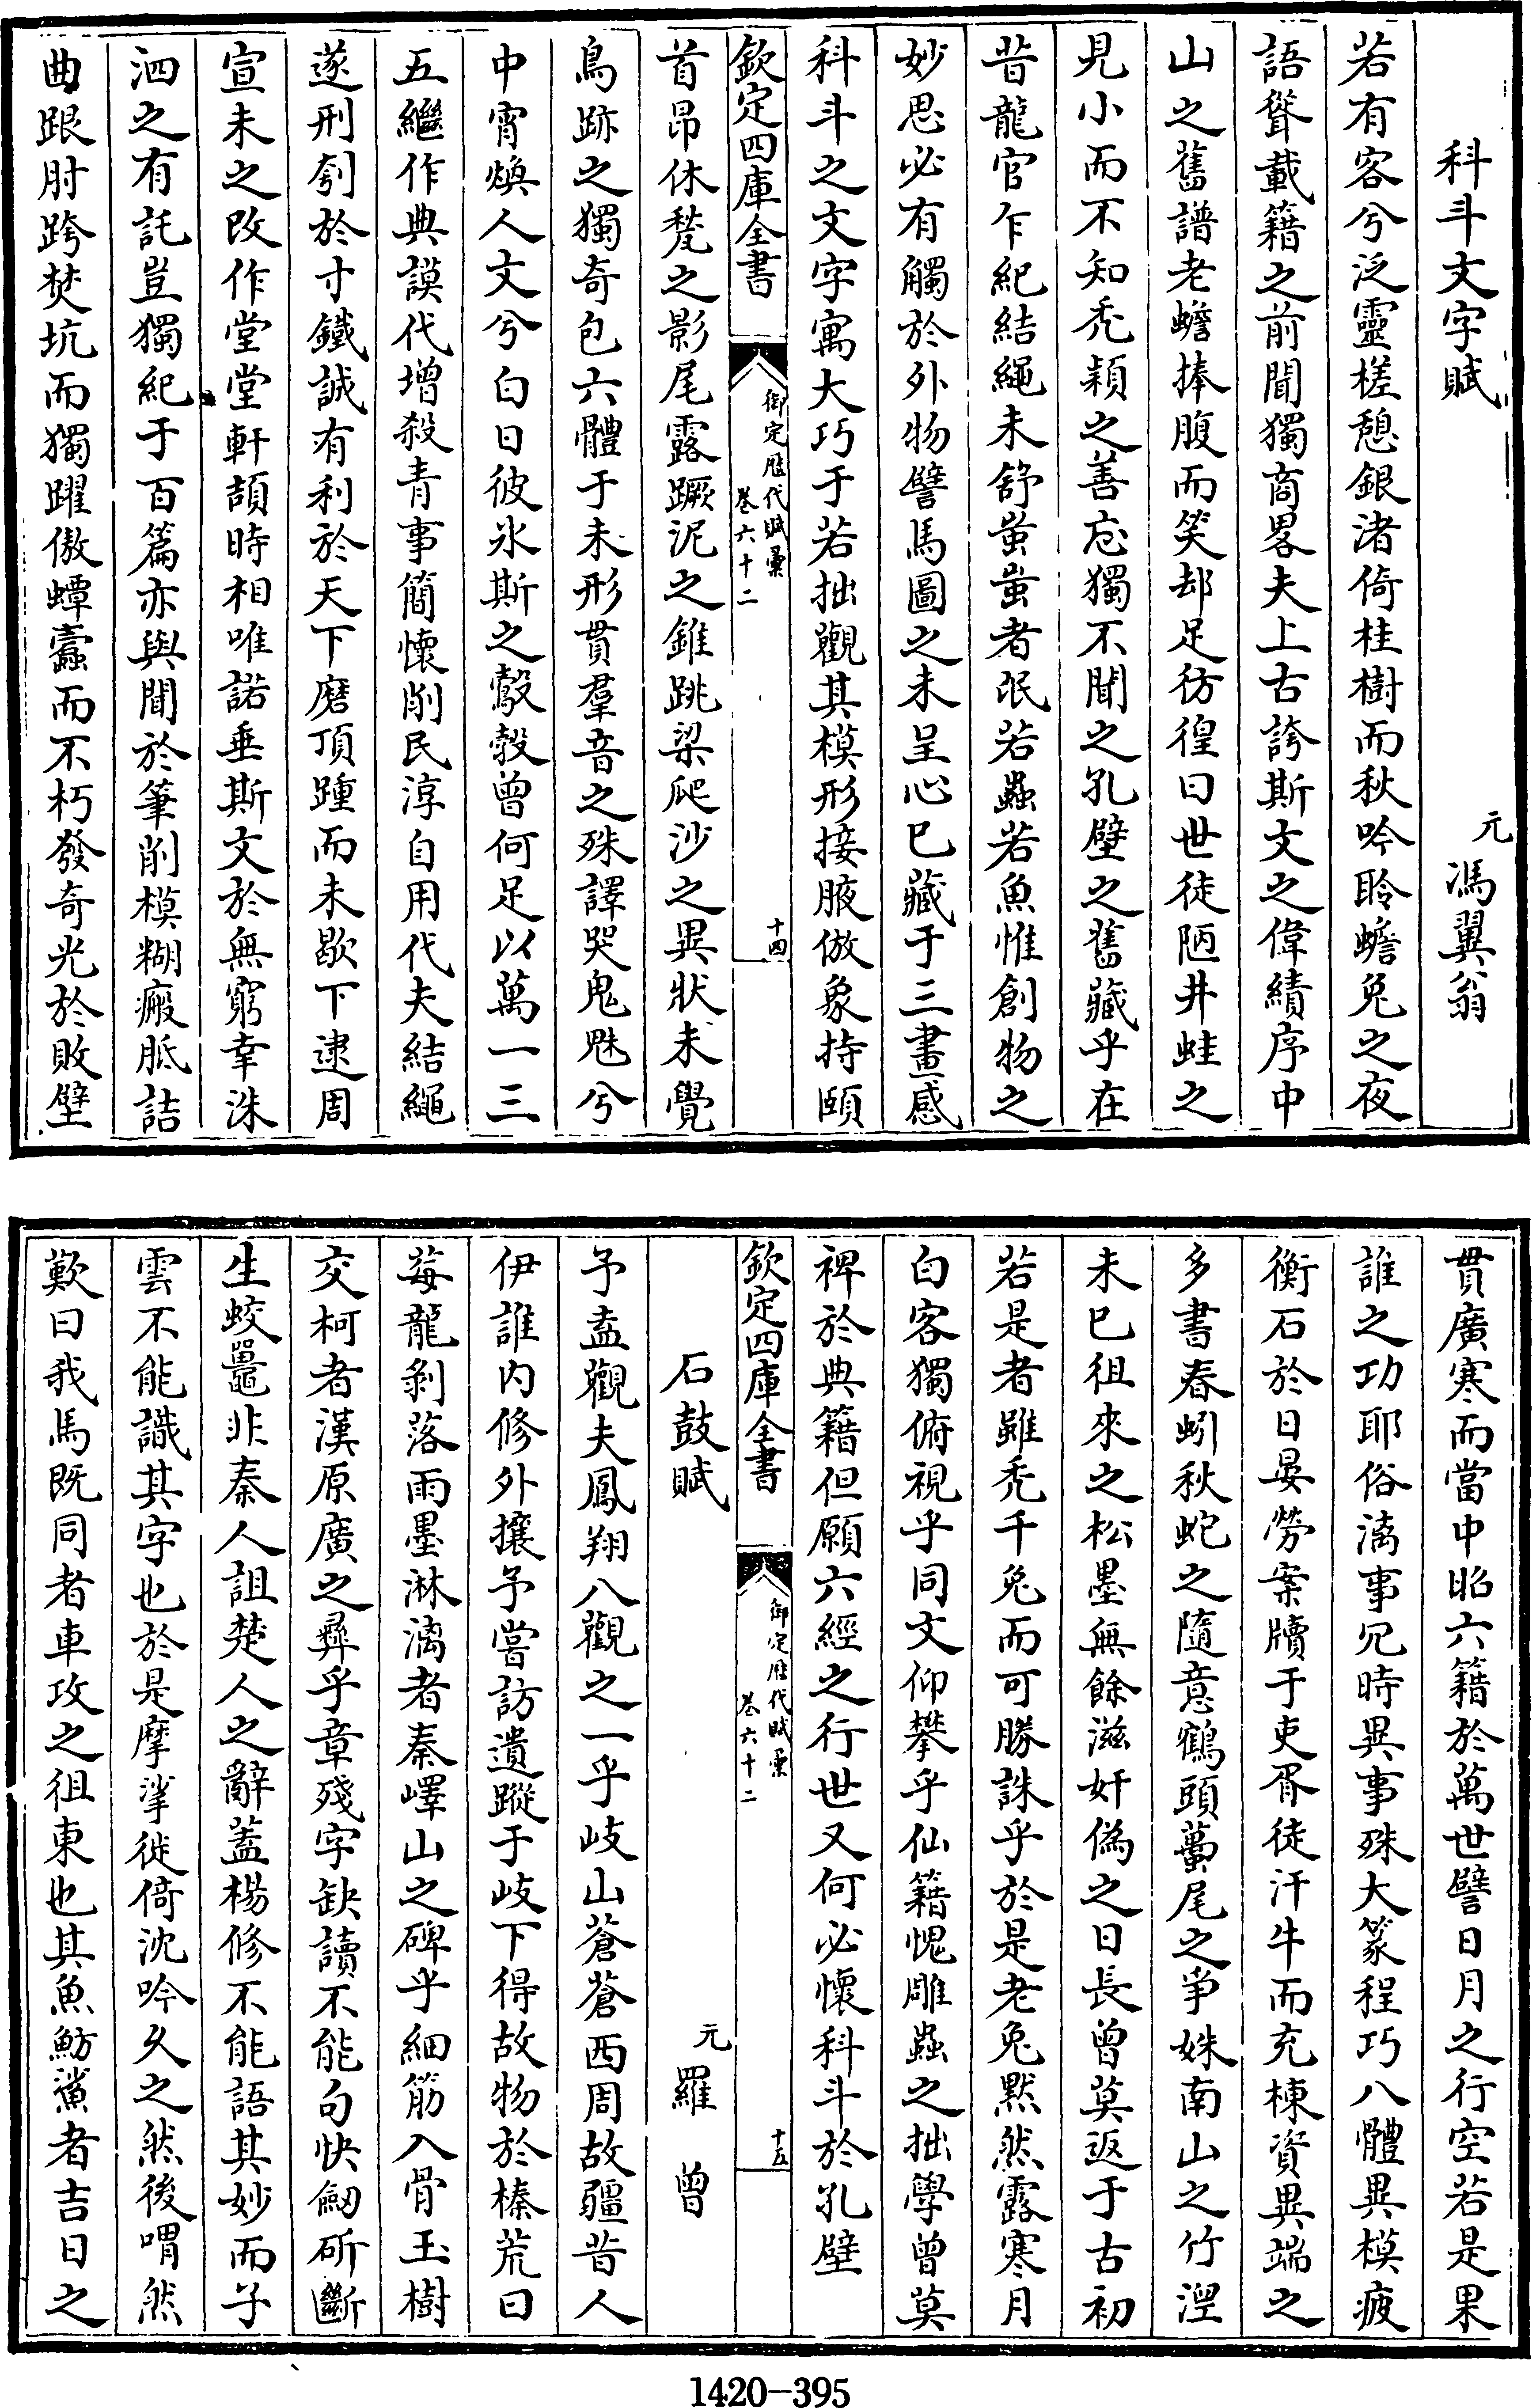 科斗文字賦
元馮翼翁
若有客兮泛靈槎憩銀渚倚桂樹而秋吟聆蟾兔之夜
語聳載籍之前聞獨商畧夫上古誇斯文之偉績序中
山之舊譜老蟾捧腹而笑却足彷徨曰世徒陋井蛙之
見小而不知禿穎之善忘獨不聞之孔壁之舊藏乎在
昔龍官乍紀結繩未舒蚩蚩者氓若蟲若魚惟創物之
妙思必有觸於外物譬馬圖之未呈心已藏于三畫感
科斗之文字寓大巧于若拙觀其模形接腋倣象持頤
欽定四庫全書
御定歷代賦彙
卷六十二
十四
首昂休甃之影尾露蹶泥之錐跳梁爬沙之異狀未覺
鳥跡之獨奇包六體于未形貫羣音之殊譯哭鬼魅兮
中宵煥人文兮白日彼氷斯之鷇鷇曾何足以萬一三
五繼作典謨代增殺青事簡懷削民淳自用代夫結繩
遂刑刳於寸鐵誠有利於天下磨頂踵而未歇下逮周
宣未之改作堂堂軒頡時相唯諾垂斯文於無窮幸洙
泗之有託豈獨紀于百篇亦與聞於筆削模糊瘢胝詰
曲踉肘跨焚坑而獨躍傲蟫蠹而不朽發奇光於敗壁
貫廣寒而當中昭六籍於萬世譬日月之行空若是果
誰之功耶俗漓事冗時異事殊大篆程巧八體異模疲
衡石於日晏勞案牘于吏胥徒汗牛而充棟資異端之
多書春蚓秋蛇之隨意鶴頭蠆尾之爭姝南山之竹湮
未已徂來之松墨無餘滋奸偽之日長曾莫返于古初
若是者雖禿千兔而可勝誅乎於是老兔黙然露寒月
白客獨俯視乎同文仰攀乎仙籍愧雕蟲之拙學曾莫
裨於典籍但願六經之行世又何必懷科斗於孔壁
欽定四庫全書
御定歷代賦彙
卷六十二
十五
石鼓賦
元羅曾
予盍觀夫鳳翔八觀之一乎岐山蒼蒼西周故疆昔人
伊誰内修外攘予嘗訪遺蹤于岐下得故物於榛荒曰
莓龍剝落雨墨淋漓者秦嶧山之碑乎細筋入骨玉樹
交柯者漢原廣之彛乎章殘字缺讀不能句快劒斫斷
生蛟鼉非秦人詛楚人之辭蓋楊修不能語其妙而子
雲不能識其字也於是摩挲徙倚沈吟久之然後喟然
歎曰我馬既同者車攻之徂東也其魚魴鱮者吉日之
1420-395